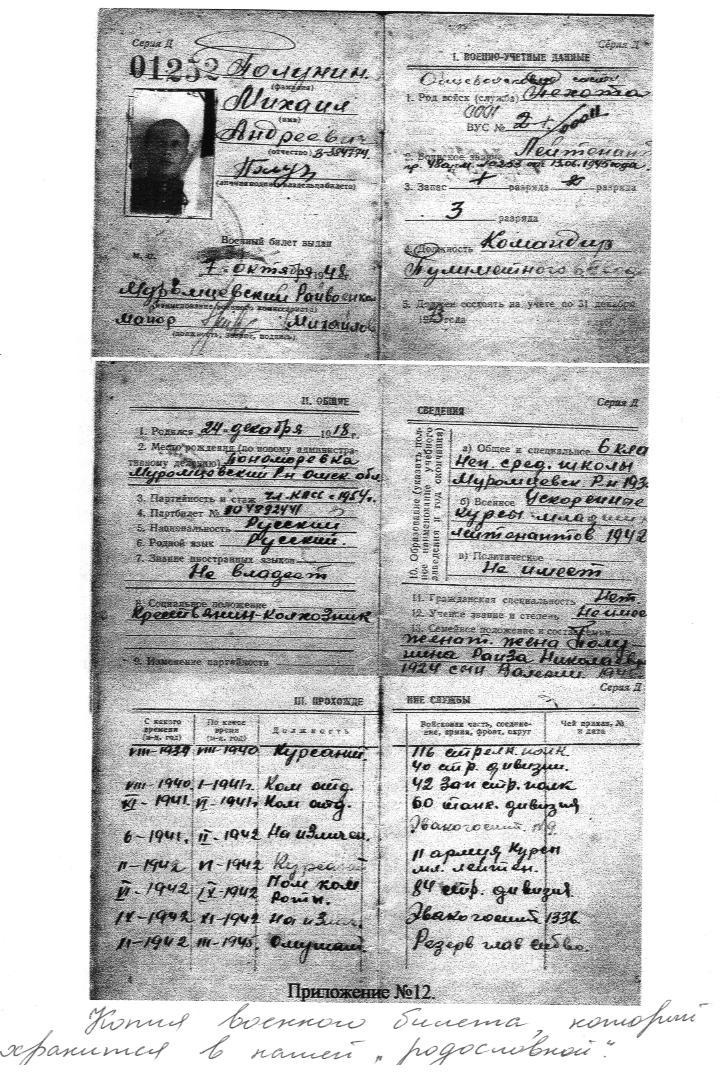 Серия Д
01252 Полунин
(фамилия)
Михаил
(имя)
Андреевич
(отчество)
Военный билет выдан
м. п.
7 октября 1948 г.
Муромцевский Райвоенком
майор Михайлов
(должность, звание, подпись)
Серия Д
I. ВОЕННО-УЧЕТНЫЕ ДАННЫЕ
1. Род войск (служба) Пехота
ВУС №
2. Воинское звание Лейтенант
3. Запас разряда разряда
3 разряда
4. Должность Командир
Пулиметного
5. Должен состоять на учете по 31 декабря
1973 года
II. ОБЩИЕ
1. Родился 24 декабря 1918 г.
2. Место рождения (по новому администра-
тивному делению) Пономаревка
Муромцевский Р-н Омск обл
3. Партийность и стаж чл. КПСС с 1954 г.
4. Партбилет №
5. Национальность Русский
6. Родной язык Русский.
7. Знание иностранных языков
Не владеет
8. Социальное положение
Крестьянин-Колхозник
9. Изменение партийности
Серия Д
СВЕДЕНИЯ
10. Образование (указать пол-
ное наименование учебного
заведения и год окончания)
а) Общее и специальное 6 кла
Неп. сред. школы
Муромцевск Р-н 193
б) Военное Ускоренные
курсы младших
лейтенантов 1942
в) Политическое
Не имеет
11. Гражданская специальность Нет
12. Ученое звание и степень Не имее
13. Семейное положение и состав семьи
женат. жена Полу
нина Раиза Николаев
1924 сын Валерий
Серия Д
III. ПРОХОЖДЕ НИЕ СЛУЖБЫ
С какого времени (м-ц, год) По какое время (м-ц, год) Должность Войсковая часть, соедине-ние, армия, фронт, округ Чей приказ, № и дата
VIII-1939 VIII-1940 Курсант 116 стрелк. полк
40 стр. дивизии.
VIII-1940 I-1941г. Ком отд. 42 Зап стр. полк
VI-1941г. Ком отд. 60 танк. дивизия
6-1941. II-1942 На излечен. Эвакогоспит.
II-1942 VI-1942 Курсант 11 армия Курсы
мл. лейтен.
VI-1942 IX-1942 Пом ком 84 стр. дивизия
Роты.
IX-1942 XI-1942 На Эвакогоспит 1336
1942 III-1945. Резерв глав
4
5
Приложение №12.
Копия военного билета, который
хранится в нашей „родословной".